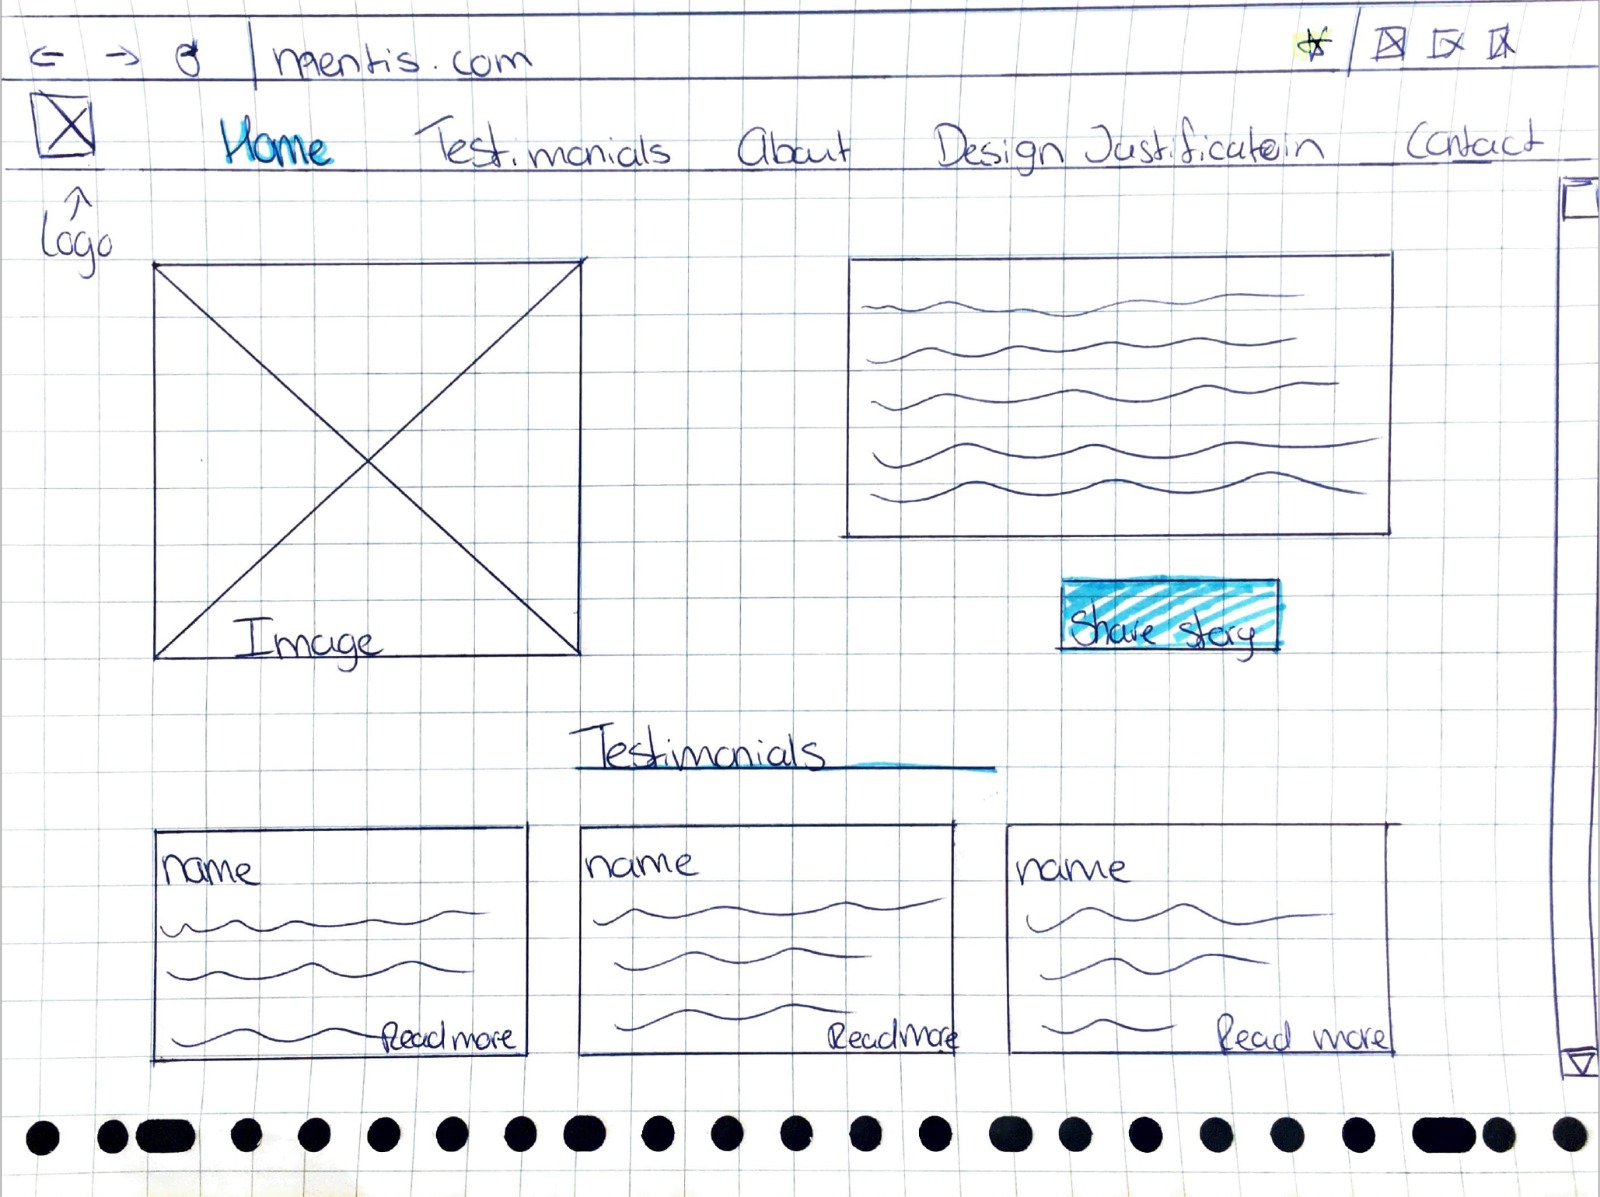 mentis.com
Home Testimonials About Design Justificatoin Contact
Logo
Image
Share story
Testimonials
name name name
Read more Read more Read more